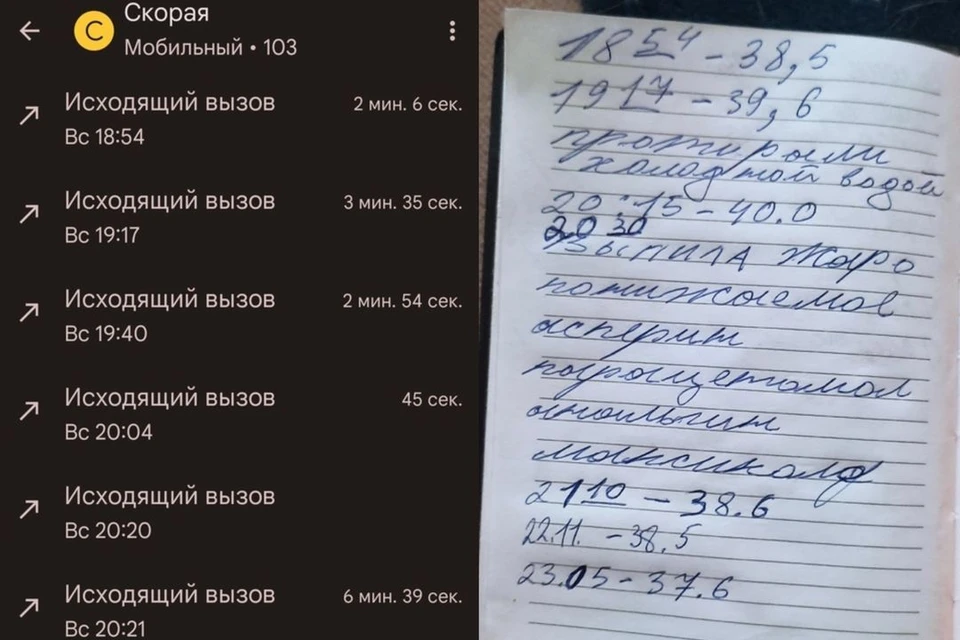 Скорая
Мобильный • 103
Исходящий вызов
2 мин. 6 сек.
Вс 18:54
Исходящий вызов
3 мин. 35 сек.
Вс 19:17
Исходящий вызов
2 мин. 54 сек.
Вс 19:40
Исходящий вызов
45 сек.
Вс 20:04
Исходящий вызов
Вс 20:20
Исходящий вызов
6 мин. 39 сек.
Вс 20:21
18 54 - 38,5
19 17 - 39,6
протирали
холодной водой
20:15 - 40.0
20 30
Выпила жаро
понижаемое
асперин
парацетамол
анальгин
максиколд
21 10 - 38.6
22.11. - 38.5
23.05 - 37.6